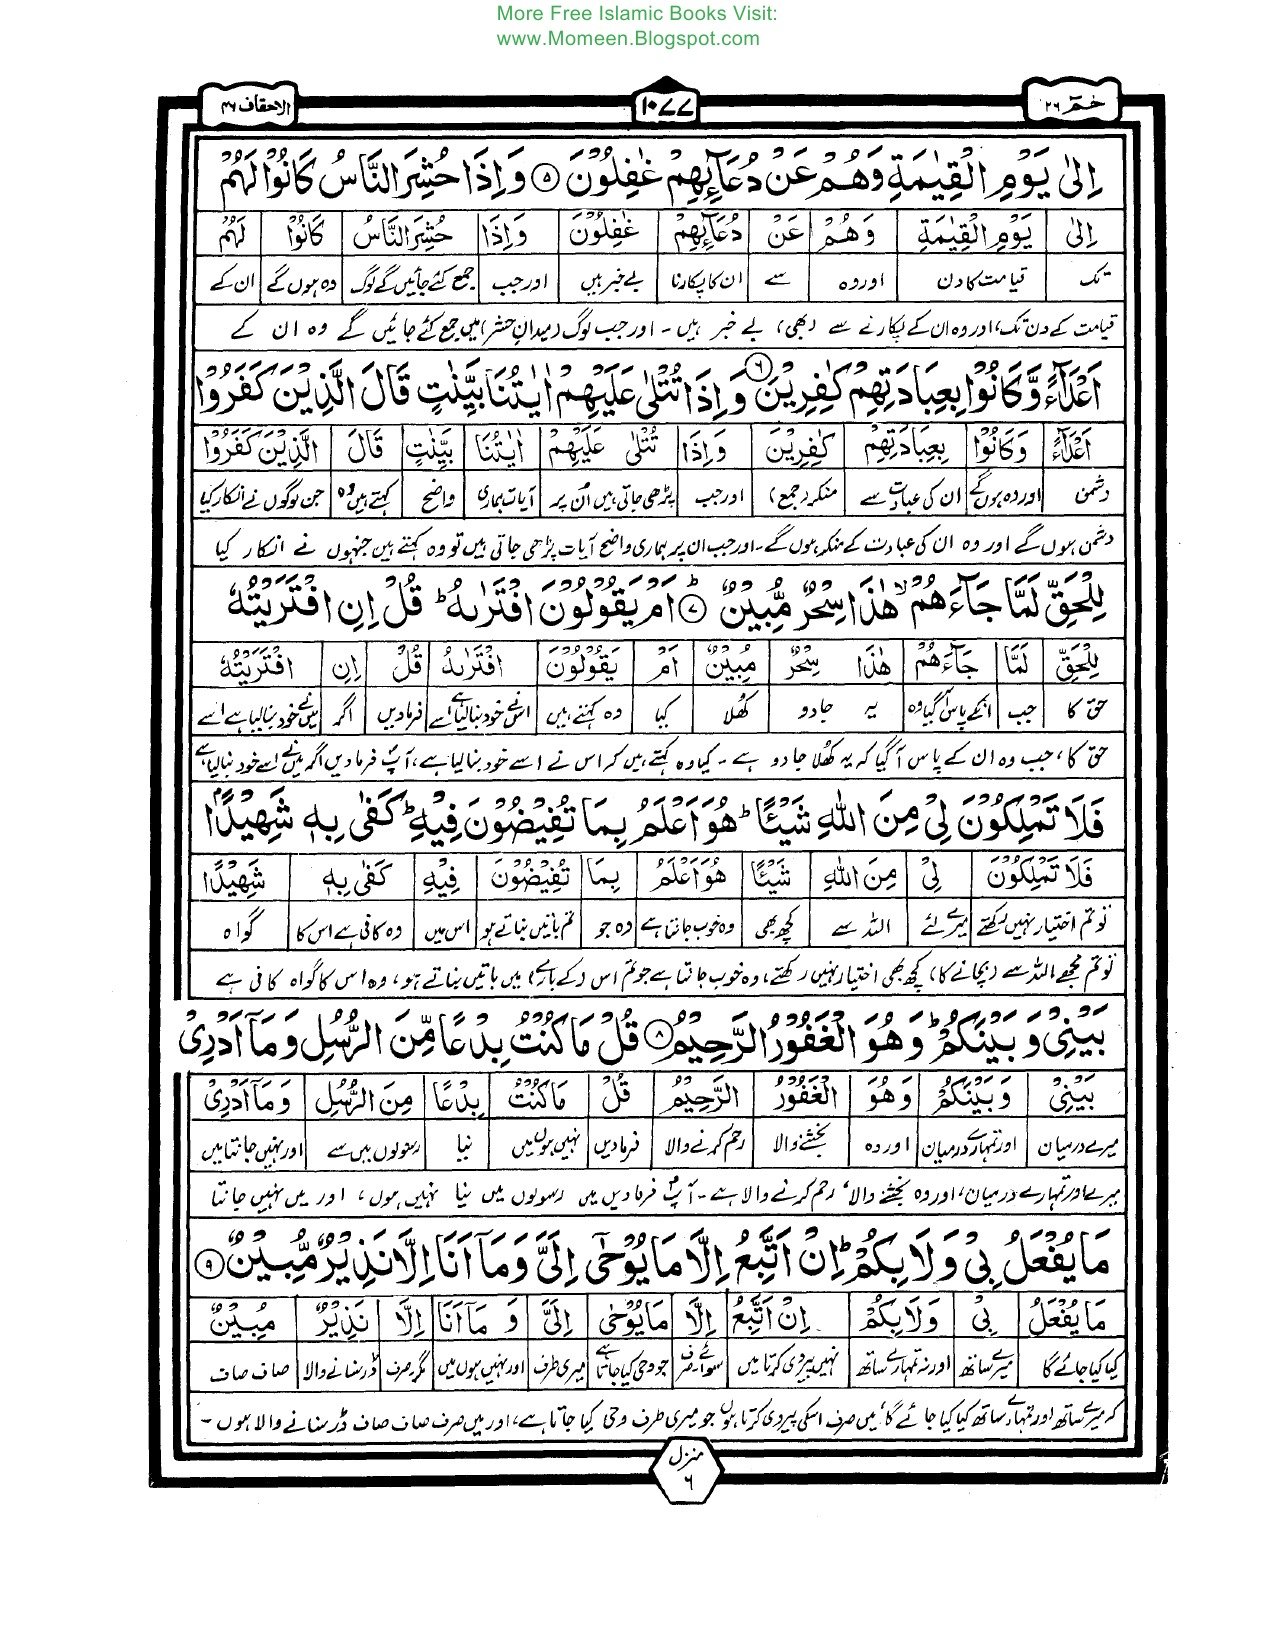 More Free Islamic Books Visit:
www.Momeen.Blogspot.com
حٰمٓ ۲۶
۱۰۷۷
الاحقاف ۴۶
اِلٰى يَوْمِ الْقِيٰمَةِ وَهُمْ عَنْ دُعَآئِهِمْ غٰفِلُوْنَ ۵ وَاِذَا حُشِرَ النَّاسُ كَانُوْا لَهُمْ
اِلٰى يَوْمِ الْقِيٰمَةِ وَهُمْ عَنْ دُعَآئِهِمْ غٰفِلُوْنَ وَاِذَا حُشِرَ النَّاسُ كَانُوْا لَهُمْ
تک قیامت کا دن اور وہ سے ان کا پکارنا بے خبر ہیں اور جب جمع کئے جائیں گے لوگ وہ ہوں گے ان کے
قیامت کے دن تک، اور وہ ان کے پکارنے سے (بھی) بے خبر ہیں۔ اور جب لوگ (میدانِ حشر) میں جمع کئے جائیں گے وہ ان کے
اَعْدَآءً وَّكَانُوْا بِعِبَادَتِهِمْ كٰفِرِيْنَ ۶ وَاِذَا تُتْلٰى عَلَيْهِمْ اٰيٰتُنَا بَيِّنٰتٍ قَالَ الَّذِيْنَ كَفَرُوْا
اَعْدَآءً وَكَانُوْا بِعِبَادَتِهِمْ كٰفِرِيْنَ وَاِذَا تُتْلٰى عَلَيْهِمْ اٰيٰتُنَا بَيِّنٰتٍ قَالَ الَّذِيْنَ كَفَرُوْا
دشمن اور وہ ہوں گے ان کی عبادت سے منکر (جمع) اور جب پڑھی جاتی ہیں ان پر آیات ہماری واضح کہتے ہیں وہ جن لوگوں نے انکار کیا
دشمن ہوں گے اور وہ ان کی عبادت کے منکر ہوں گے۔ اور جب ان پر ہماری واضح آیات پڑھی جاتی ہیں تو وہ کہتے ہیں جنہوں نے انکار کیا
لِلْحَقِّ لَمَّا جَآءَهُمْ ۙ هٰذَا سِحْرٌ مُّبِيْنٌ ۷ ؕ اَمْ يَقُوْلُوْنَ افْتَرٰىهُ ؕ قُلْ اِنِ افْتَرَيْتُهٗ
لِلْحَقِّ لَمَّا جَآءَهُمْ هٰذَا سِحْرٌ مُبِيْنٌ اَمْ يَقُوْلُوْنَ افْتَرٰىهُ قُلْ اِنِ افْتَرَيْتُهٗ
حق کا جب انکے پاس آگیا وہ یہ جادو کھلا کیا وہ کہتے ہیں اس نے خود بنا لیا ہے اسے فرمادیں اگر میں نے خود بنا لیا ہے اسے
حق کا، جب وہ ان کے پاس آگیا کہ یہ کھلا جادو ہے۔ کیا وہ کہتے ہیں کہ اس نے اسے خود بنا لیا ہے، آپ فرمادیں اگر میں نے اسے خود بنا لیا ہے
فَلَا تَمْلِكُوْنَ لِيْ مِنَ اللّٰهِ شَيْـًٔا ؕ هُوَ اَعْلَمُ بِمَا تُفِيْضُوْنَ فِيْهِ ؕ كَفٰى بِهٖ شَهِيْدًۢا
فَلَا تَمْلِكُوْنَ لِيْ مِنَ اللّٰهِ شَيْـًٔا هُوَ اَعْلَمُ بِمَا تُفِيْضُوْنَ فِيْهِ كَفٰى بِهٖ شَهِيْدًا
تو تم اختیار نہیں رکھتے میرے لئے اللہ سے کچھ بھی وہ خوب جانتا ہے وہ جو تم باتیں بناتے ہو اس میں وہ کافی ہے اس کا گواہ
تو تم مجھے اللہ سے (بچانے کا) کچھ بھی اختیار نہیں رکھتے، وہ خوب جانتا ہے جو تم اس (کے بارے) میں باتیں بناتے ہو، وہ اس کا گواہ کافی ہے
بَيْنِيْ وَبَيْنَكُمْ ؕ وَهُوَ الْغَفُوْرُ الرَّحِيْمُ ۸ قُلْ مَا كُنْتُ بِدْعًا مِّنَ الرُّسُلِ وَمَآ اَدْرِيْ
بَيْنِيْ وَبَيْنَكُمْ وَهُوَ الْغَفُوْرُ الرَّحِيْمُ قُلْ مَا كُنْتُ بِدْعًا مِنَ الرُّسُلِ وَمَآ اَدْرِيْ
میرے درمیان اور تمہارے درمیان اور وہ بخشنے والا رحم کرنے والا فرمادیں نہیں ہوں میں نیا رسولوں میں سے اور نہیں جانتا میں
میرے اور تمہارے درمیان، اور وہ بخشنے والا، رحم کرنے والا ہے۔ آپ فرمادیں میں رسولوں میں نیا نہیں ہوں، اور میں نہیں جانتا
مَا يُفْعَلُ بِيْ وَلَا بِكُمْ ؕ اِنْ اَتَّبِعُ اِلَّا مَا يُوْحٰٓى اِلَيَّ وَمَآ اَنَا اِلَّا نَذِيْرٌ مُّبِيْنٌ ۹
مَا يُفْعَلُ بِيْ وَلَا بِكُمْ اِنْ اَتَّبِعُ اِلَّا مَا يُوْحٰى اِلَيَّ وَ مَآ اَنَا اِلَّا نَذِيْرٌ مُبِيْنٌ
کیا کیا جائے گا میرے ساتھ اور نہ تمہارے ساتھ نہیں پیروی کرتا میں سوائے صرف جو وحی کیا جاتا ہے میری طرف اور نہیں ہوں میں مگر صرف ڈر سنانے والا صاف صاف
کہ میرے ساتھ اور تمہارے ساتھ کیا کیا جائے گا، میں صرف اسکی پیروی کرتا ہوں جو میری طرف وحی کیا جاتا ہے، اور میں صرف صاف صاف ڈر سنانے والا ہوں۔
منزل
۶